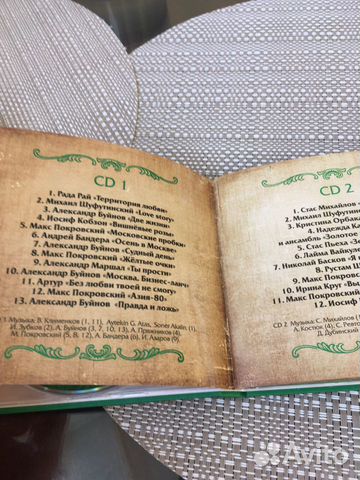 CD 1
1. Рада Рай «Территория любви»
2. Михаил Шуфутинский «Love story»
3. Александр Буйнов «Две жизни»
4. Иосиф Кобзон «Вишнёвые розы»
5. Макс Покровский «Московские пробки»
6. Андрей Бандера «Осень в Москве»
7. Александр Буйнов «Судный день»
8. Макс Покровский «Жёлтые очки»
9. Александр Маршал «Ты прости»
10. Александр Буйнов «Москва. Бизнес-ланч»
11. Артур «Без любви твоей не смогу»
12. Макс Покровский «Азия-80»
13. Александр Буйнов «Правда и ложь»
1. Музыка: В. Клименков (1, 11), Aytekin G. Atas, Soner Akalin (1),
И. Зубков (2), А. Буйнов (3, 7, 10, 13), А. Пряжников (4),
М. Покровский (5, 8, 12), А. Бандера (6), И. Азаров (9).
CD 2
1. Стас Михайлов
2. Михаил Шуфути
3. Кристина Орбака
4. Надежда Ка
и ансамбль «Золотое
5. Стас Пьеха
6. Лайма Вайкуле
7. Николай Басков «Я
8. Рустам Ш
9. Макс Покро
10. Ирина Круг «Вы
11. Макс Покровский
12. Иосиф
CD 2 Музыка: С. Михайлов (1
А. Костюк (4), С. Рев
Д. Дубинский
Avito